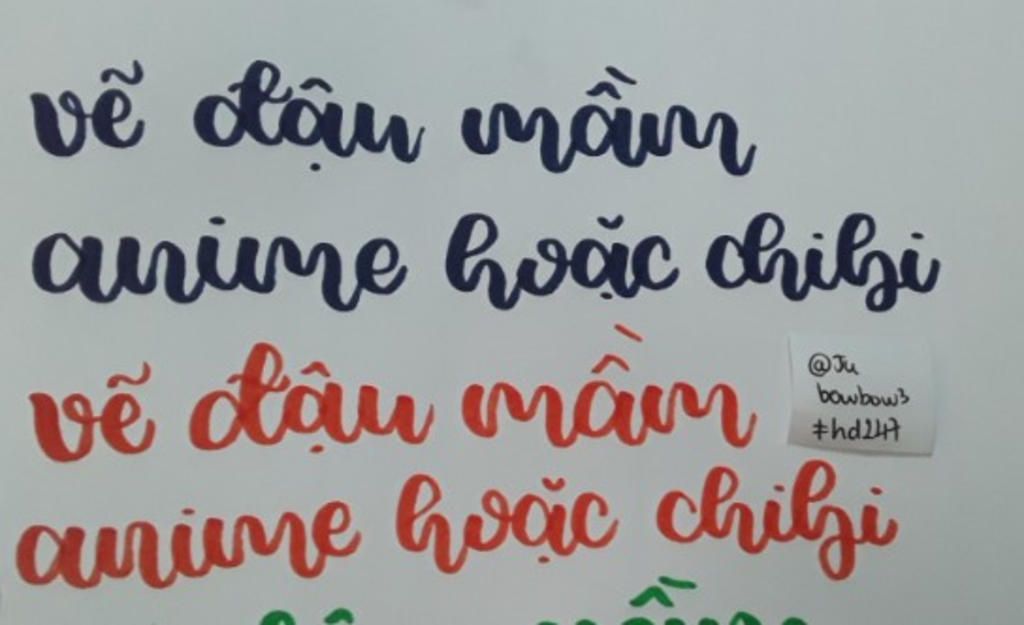 vẽ đậu mầm
anime hoặc chibi
vẽ đậu mầm
@Ju
bowbow3
#hd247
anime hoặc chibi